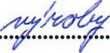 výroby